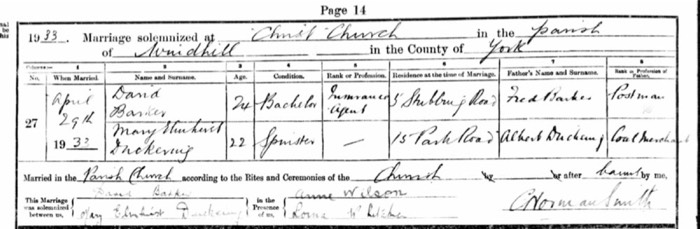 Page 14
1933. Marriage solemnized at Christ Church in the Parish
of Windhill in the County of York
No. When Married. Name and Surname. Age. Condition. Rank or Profession. Residence at the time of Marriage. Father's Name and Surname. Rank or Profession of Father.
27 April 29th 1933 David Barker 24 Bachelor Insurance Agent 5 Stubbing Road Fred Barker Postman
Mary Duckering 22 Spinster — 15 Park Road Albert Duckering Coal Merchant
Married in the Parish Church according to the Rites and Ceremonies of the Church by or after banns by me,
This Marriage was solemnized between us, David Barker Mary Duckering in the Presence of us, Anne Wilson C Norman Smith